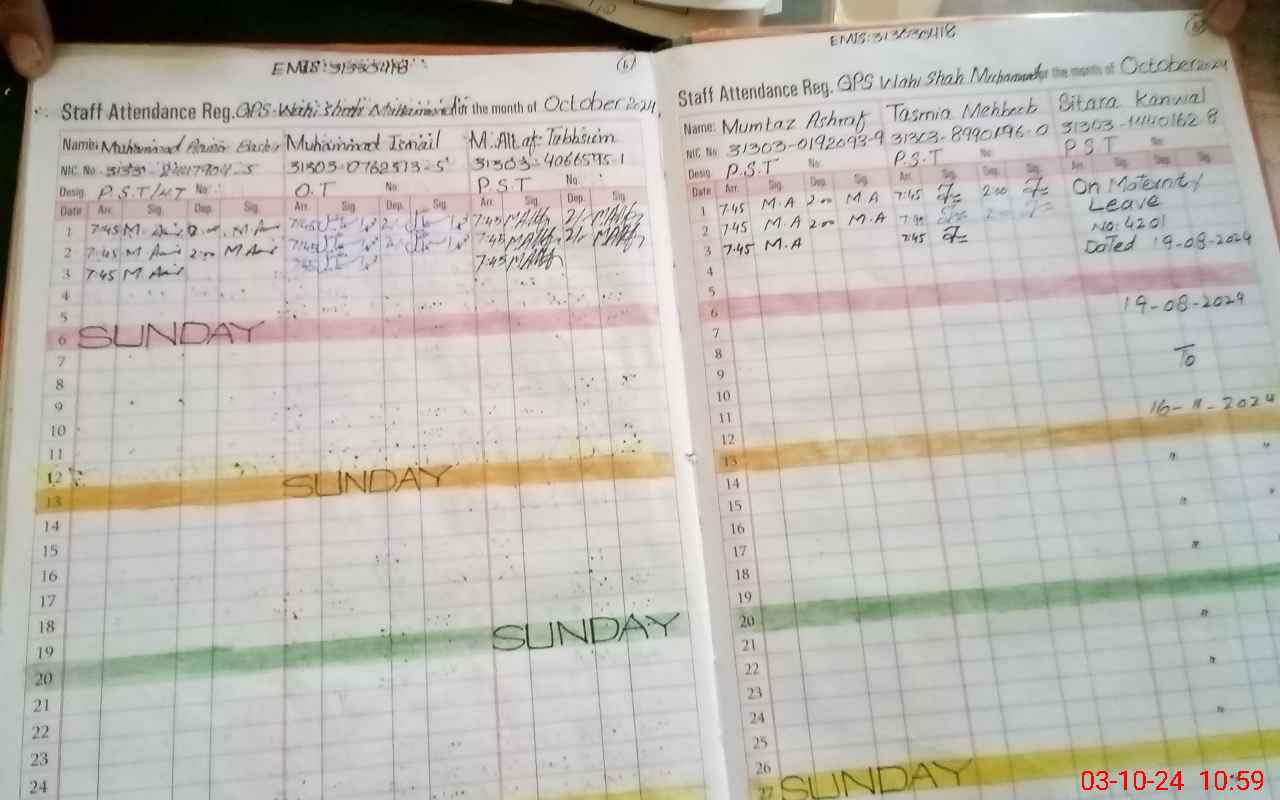 EMIS:31330418
6
Staff Attendance Reg. GPS Wahi Shah Muhammad for the month of October 2024
Name: Muhammad Bashir Muhammad Ismail M. Altaf Tabbsum
NIC. No. 31303-0762513-5 31303-4066595-1
Desig. P.S.T/HT No. O.T No. P.S.T No.
Date Arr. Sig. Dep. Sig. Arr. Sig. Dep. Sig. Arr. Sig. Dep. Sig.
1 7:45 M. 2:00 M. 7:45 2/- 7:45 2/-
2 7:45 M. 2:00 M. 7:45 2/- 7:45 2/-
3 7:45 M. 7:45
4
5
6 SUNDAY
7
8
9
10
11
12
13 SUNDAY
14
15
16
17
18
19 SUNDAY
20
21
22
23
24
EMIS:31330418
Staff Attendance Reg. GPS Wahi Shah Muhammad for the month of October 2024
Name: Mumtaz Ashraf Tasmia Mehboob Sitara Kanwal
NIC. No. 31303-0192093-9 31303-8990196-0 31303-1440162-8
Desig. P.S.T No. P.S.T No. P.S.T No.
Date Arr. Sig. Dep. Sig. Arr. Sig. Dep. Sig. Arr. Sig. Dep. Sig.
1 7:45 M.A 2:00 M.A 7:45 2:00 On Maternity
2 7:45 M.A 2:00 M.A 7:45 2:00 Leave
No: 4201
3 7:45 M.A 7:45 Dated 19-08-2024
4
5
6 19-08-2024
7
8 To
9
10
11 16-11-2024
12
13 "
14
15 "
16
17 "
18
19
20 "
21
22 "
23
24 "
25
26
27 SUNDAY
03-10-24 10:59